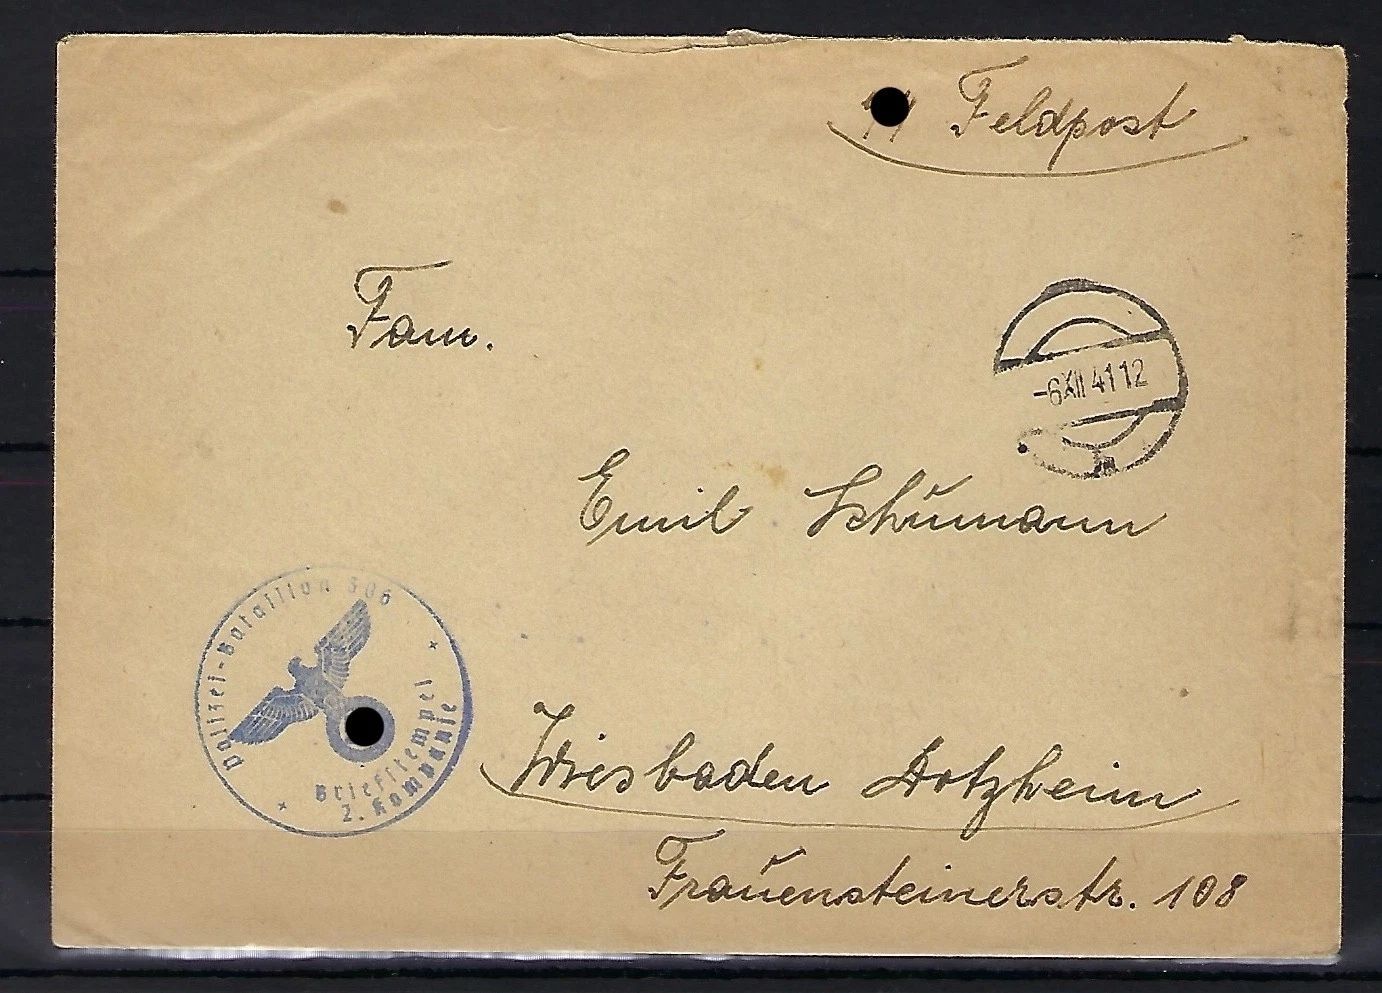 Feldpost
Fam.
-6.XII.41 12
Emil Schümann
Polizei-Bataillon 306
Briefstempel
2. Kompanie
Wiesbaden Dotzheim
Fraŭensteinerstr. 108